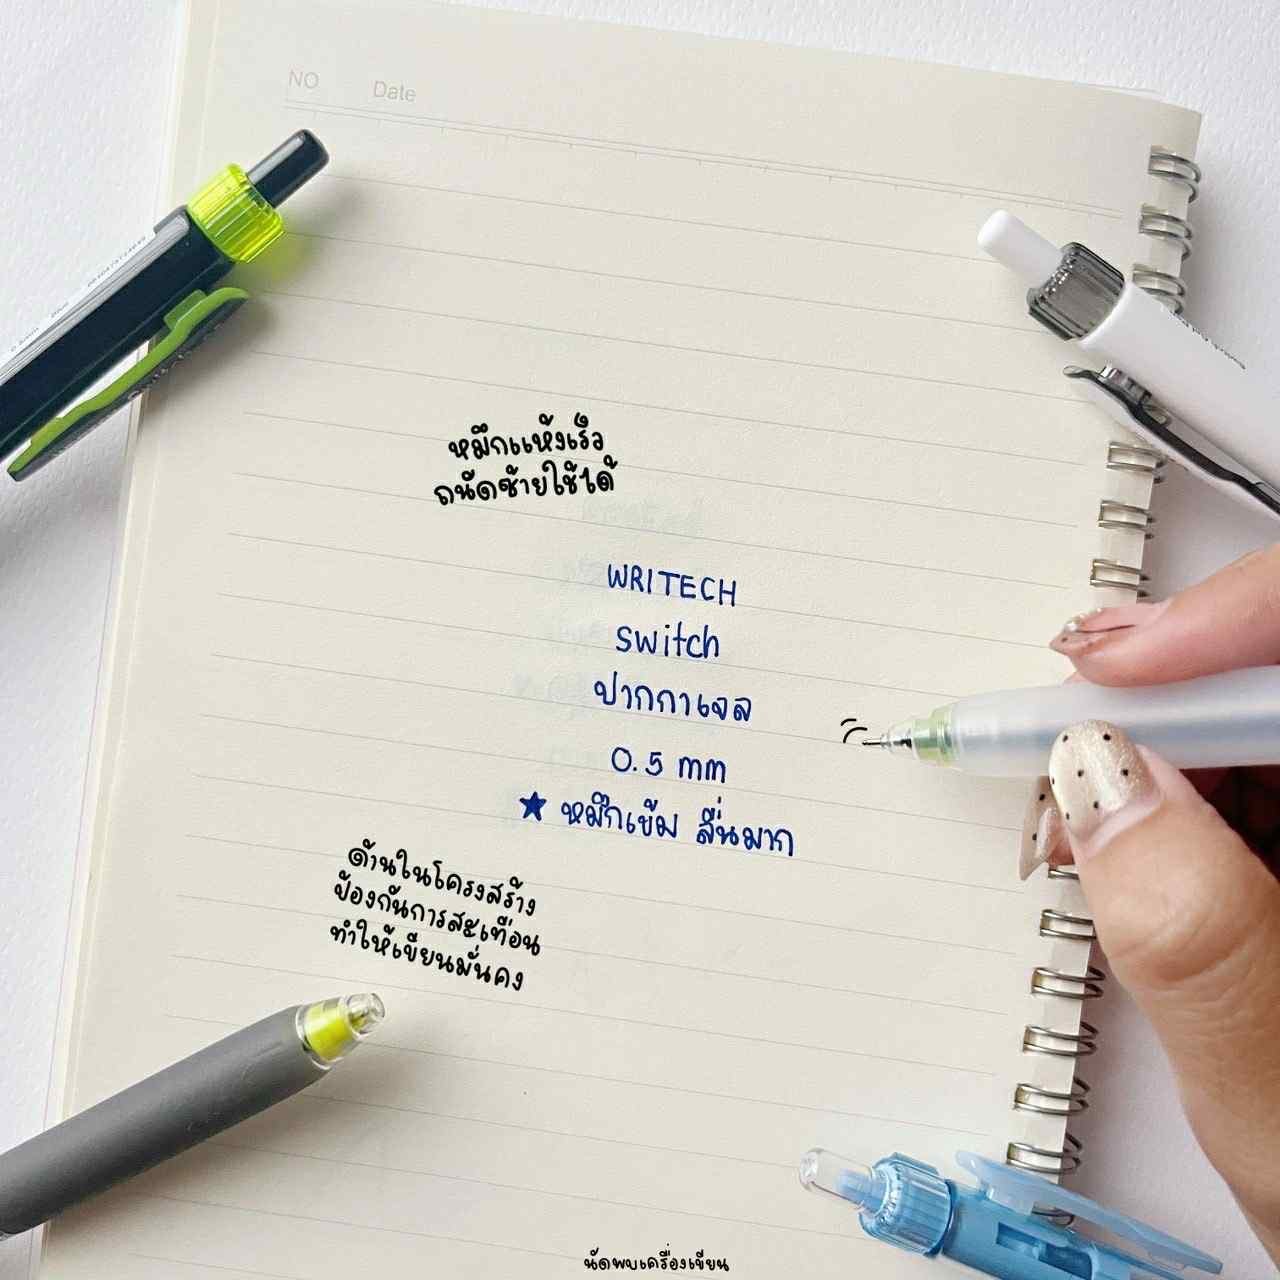 NO Date
หมึกแห้งเร็ว
ถนัดซ้ายใช้ได้
WRITECH
switch
ปากกาเจล
0.5 mm
★ หมึกเข้ม ลื่นมาก
ด้านในโครงสร้าง
ป้องกันการสะเทือน
ทำให้เขียนมั่นคง
นัดพบเครื่องเขียน